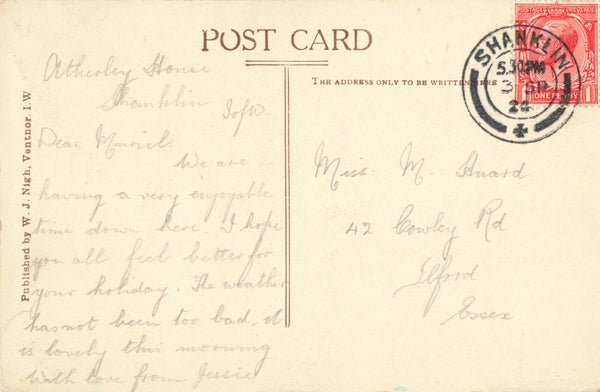 POST CARD
THE ADDRESS ONLY TO BE WRITTEN HERE
Published by W. J. Nigh, Ventnor, I.W
Atherley House
Shanklin
I of W
Dear Muriel.
We are
having a very enjoyable
time down here. I hope
you all feel better for
your holiday. The weather
has not been too bad, it
is lovely this morning
With love from Jessie
Miss. M.
42 Cowley Rd
Ilford
Essex
SHANKLIN
5.30 PM
3 SP
24
POSTAGE REVENUE
ONE PENNY